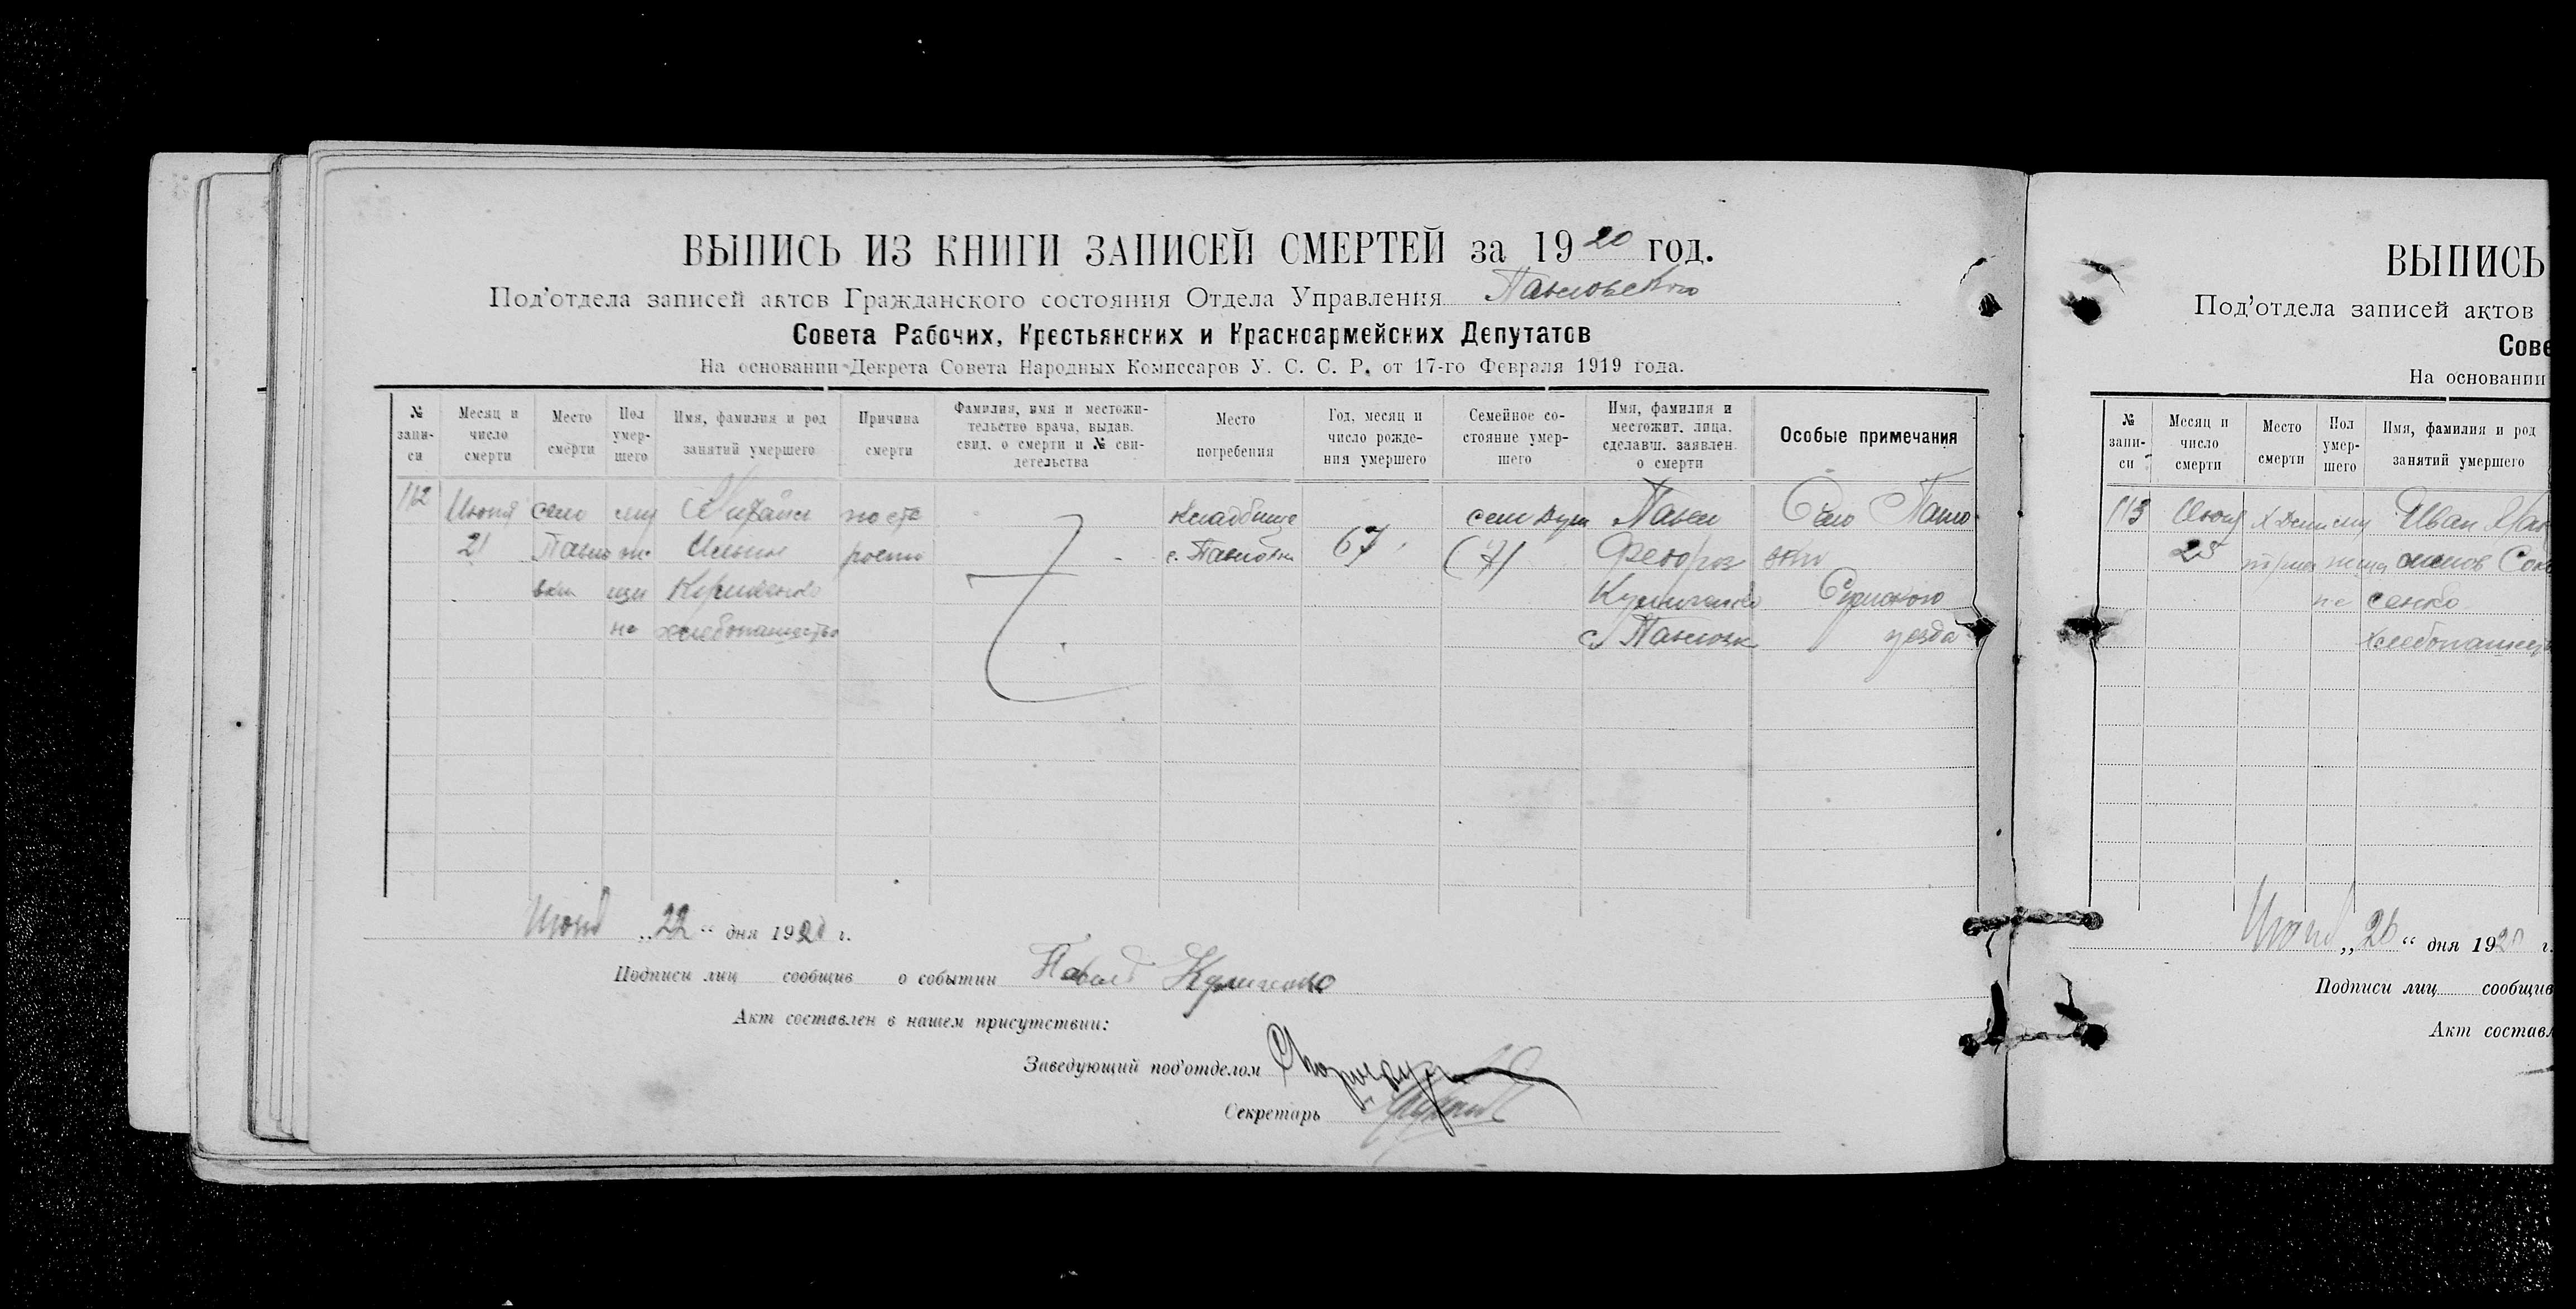 ВЫПИСЬ ИЗ КНИГИ ЗАПИСЕЙ СМЕРТЕЙ за 1920 год.
Под'отдела записей актов Гражданского состояния Отдела Управления Павловского
Совета Рабочих, Крестьянских и Красноармейских Депутатов
На основании Декрета Совета Народных Комиссаров У. С. С. Р. от 17-го Февраля 1919 года.
№ запи- си
Месяц и число смерти
Место смерти
Пол умер- шего
Имя, фамилия и род занятий умершего
Причина смерти
Фамилия, имя и местожи- тельство врача, выдав. свид. о смерти и № сви- детельства
Место погребения
Год, месяц и число рожде- ния умершего
Семейное со- стояние умер- шего
Имя, фамилия и местожит. лица, сделавш. заявлен. о смерти
Особые примечания
112 Июня село кладбище семь душ Павел Село Павло
21 Павло Ильин рости с. Павловка 67 (7) Федоров вки
вки
на хлебопашество с. Павловк уезда
Июня „22“ дня 1920 г.
Подписи лиц сообщив о событии Павел
Акт составлен в нашем присутствии:
Заведующий под'отделом
Секретарь
ВЫПИСЬ
Под'отдела записей актов
Сове
На основании
№ запи- си
Месяц и число смерти
Место смерти
Пол умер- шего
Имя, фамилия и род занятий умершего
113 Июня Иван
25
сенко
хлебопашест
Июня „26“ дня 1920 г.
Подписи лиц сообщив
Акт составл